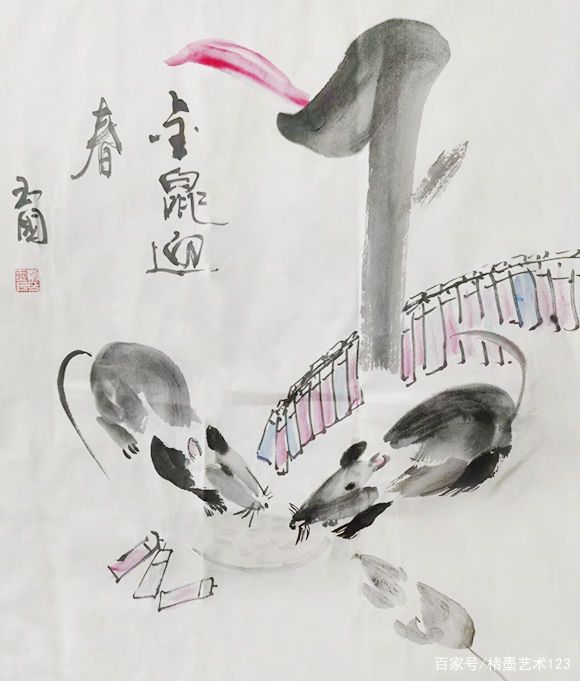 金鼠迎
春
玉國
百家号/楮墨艺术123